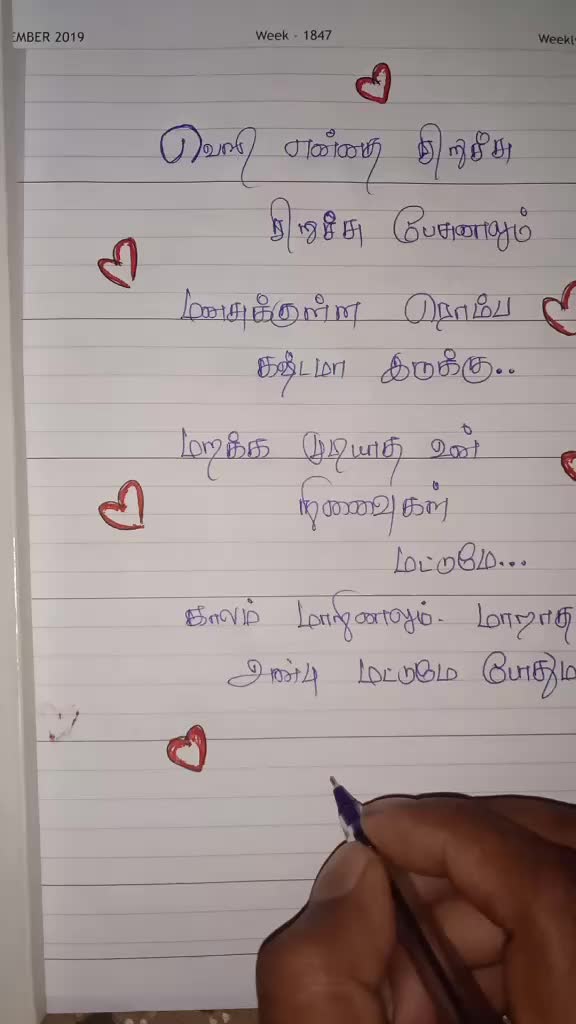 EMBER 2019 Week - 1847 Weekl
வெளி என்னத சிறுச்சு
சிறுச்சு பேசுனாலும்
மனசுக்குள்ள ரொம்ப
கஷ்டமா இருக்கு..
மறக்க முடியாத உன்
நினைவுகள்
மட்டுமே...
காலம் மாறினாலும். மாறாத
அன்பு மட்டுமே போதும